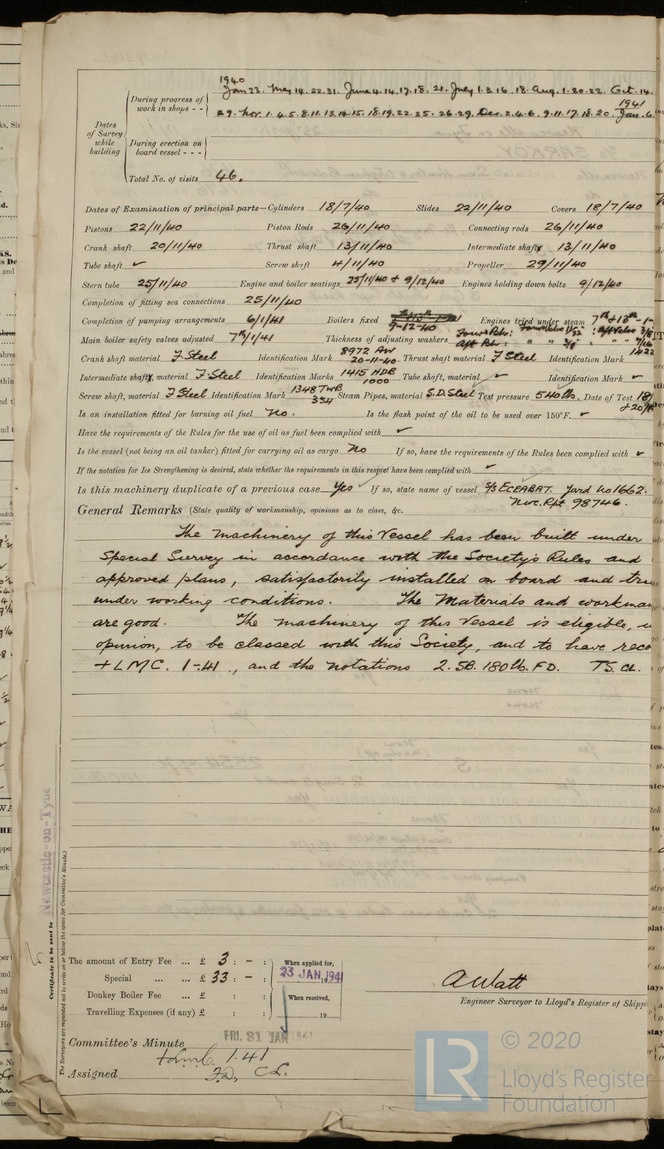 1940
During progress of work in shops - - Jan 23. May 14. 22. 31. June 4. 14. 17. 18. 21. July 1. 3. 16. 18. Aug. 1. 20. 22. Oct. 14.
1941
29. Nov. 1. 4. 5. 8. 11. 13. 14. 15. 18. 19. 22. 25. 26. 29. Dec. 2. 4. 6. 9. 11. 17. 18. 20. Jan. 6.
Dates of Survey while building
During erection on board vessel - - -
Total No. of visits 46.
Dates of Examination of principal parts—Cylinders 18/7/40 Slides 22/11/40 Covers 18/7/40
Pistons 22/11/40 Piston Rods 26/11/40 Connecting rods 26/11/40
Crank shaft 20/11/40 Thrust shaft 13/11/40 Intermediate shafts 13/11/40
Tube shaft ✓ Screw shaft 4/11/40 Propeller 29/11/40
Stern tube 25/11/40 Engine and boiler seatings 25/11/40 & 9/12/40 Engines holding down bolts 9/12/40
Completion of fitting sea connections 25/11/40
Completion of pumping arrangements 6/1/41 Boilers fixed 9-12-40 Engines tried under steam 7th & 13th -1-
Main boiler safety valves adjusted 7th/1/41 Thickness of adjusting washers
Crank shaft material F Steel Identification Mark 8972 AW 20-11-40 Thrust shaft material F Steel Identification Mark 1422
Intermediate shafts, material F Steel Identification Marks 1415 HDB 1000 Tube shaft, material ✓ Identification Mark ✓
Screw shaft, material F Steel Identification Mark 1348 TWB 354 Steam Pipes, material S.D. Steel Test pressure 540 lbs. Date of Test 18/
Is an installation fitted for burning oil fuel No. Is the flash point of the oil to be used over 150°F. ✓
Have the requirements of the Rules for the use of oil as fuel been complied with ✓
Is the vessel (not being an oil tanker) fitted for carrying oil as cargo No If so, have the requirements of the Rules been complied with ✓
If the notation for Ice Strengthening is desired, state whether the requirements in this respect have been complied with ✓
Is this machinery duplicate of a previous case Yes If so, state name of vessel S/S ECEABAT. Yard No 1662.
Nwc. Rpt 98746.
General Remarks (State quality of workmanship, opinions as to class, &c.
The machinery of this Vessel has been built under
Special Survey in accordance with the Society's Rules and
approved plans, satisfactorily installed on board and
under working conditions. The Materials and
are good. The machinery of this Vessel is eligible,
opinion, to be classed with this Society, and to have
+ LMC. 1-41., and the notations 2. SB. 180 lb. FD. TS. CL.
Newcastle-on-Tyne
Certificate to be sent to
(The Surveyors are requested not to write on or below the space for Committee's Minute.)
The amount of Entry Fee ... £ 3 : - :
Special ... ... £ 33 : - :
Donkey Boiler Fee ... £ : :
Travelling Expenses (if any) £ : :
When applied for,
23 JAN 1941
When received,
19
A Watt
Engineer Surveyor to Lloyd's Register of Shipp
FRI. 31 JAN 1941
Committee's Minute
+ LMC 1.41
Assigned FD, CL.
LR
© 2020
Lloyd's Register
Foundation